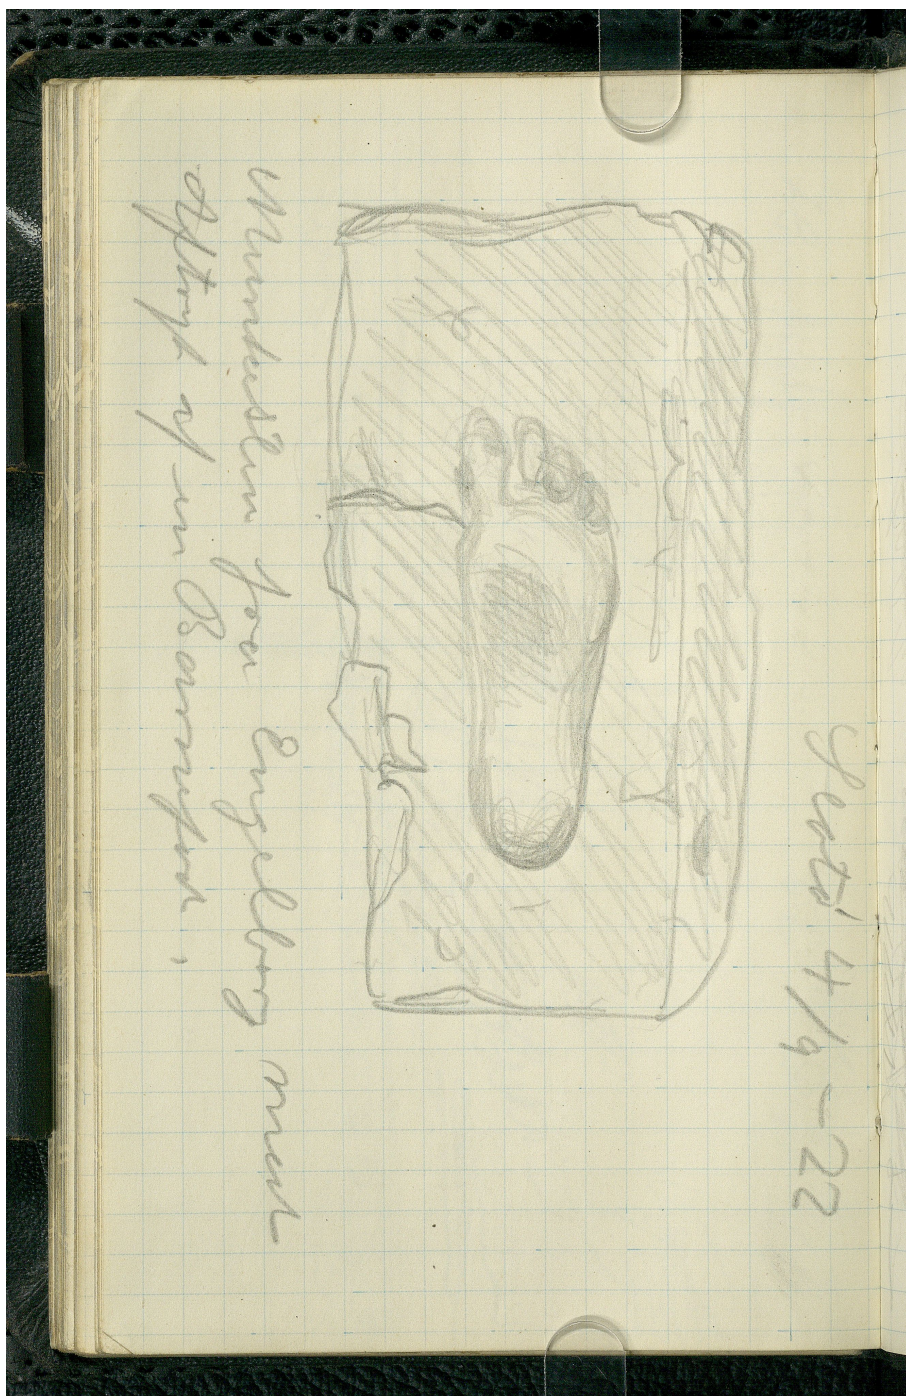 Slotø 4/9 - 22
Munkesten fra Engelborg med
Aftryk af en Barnefod.